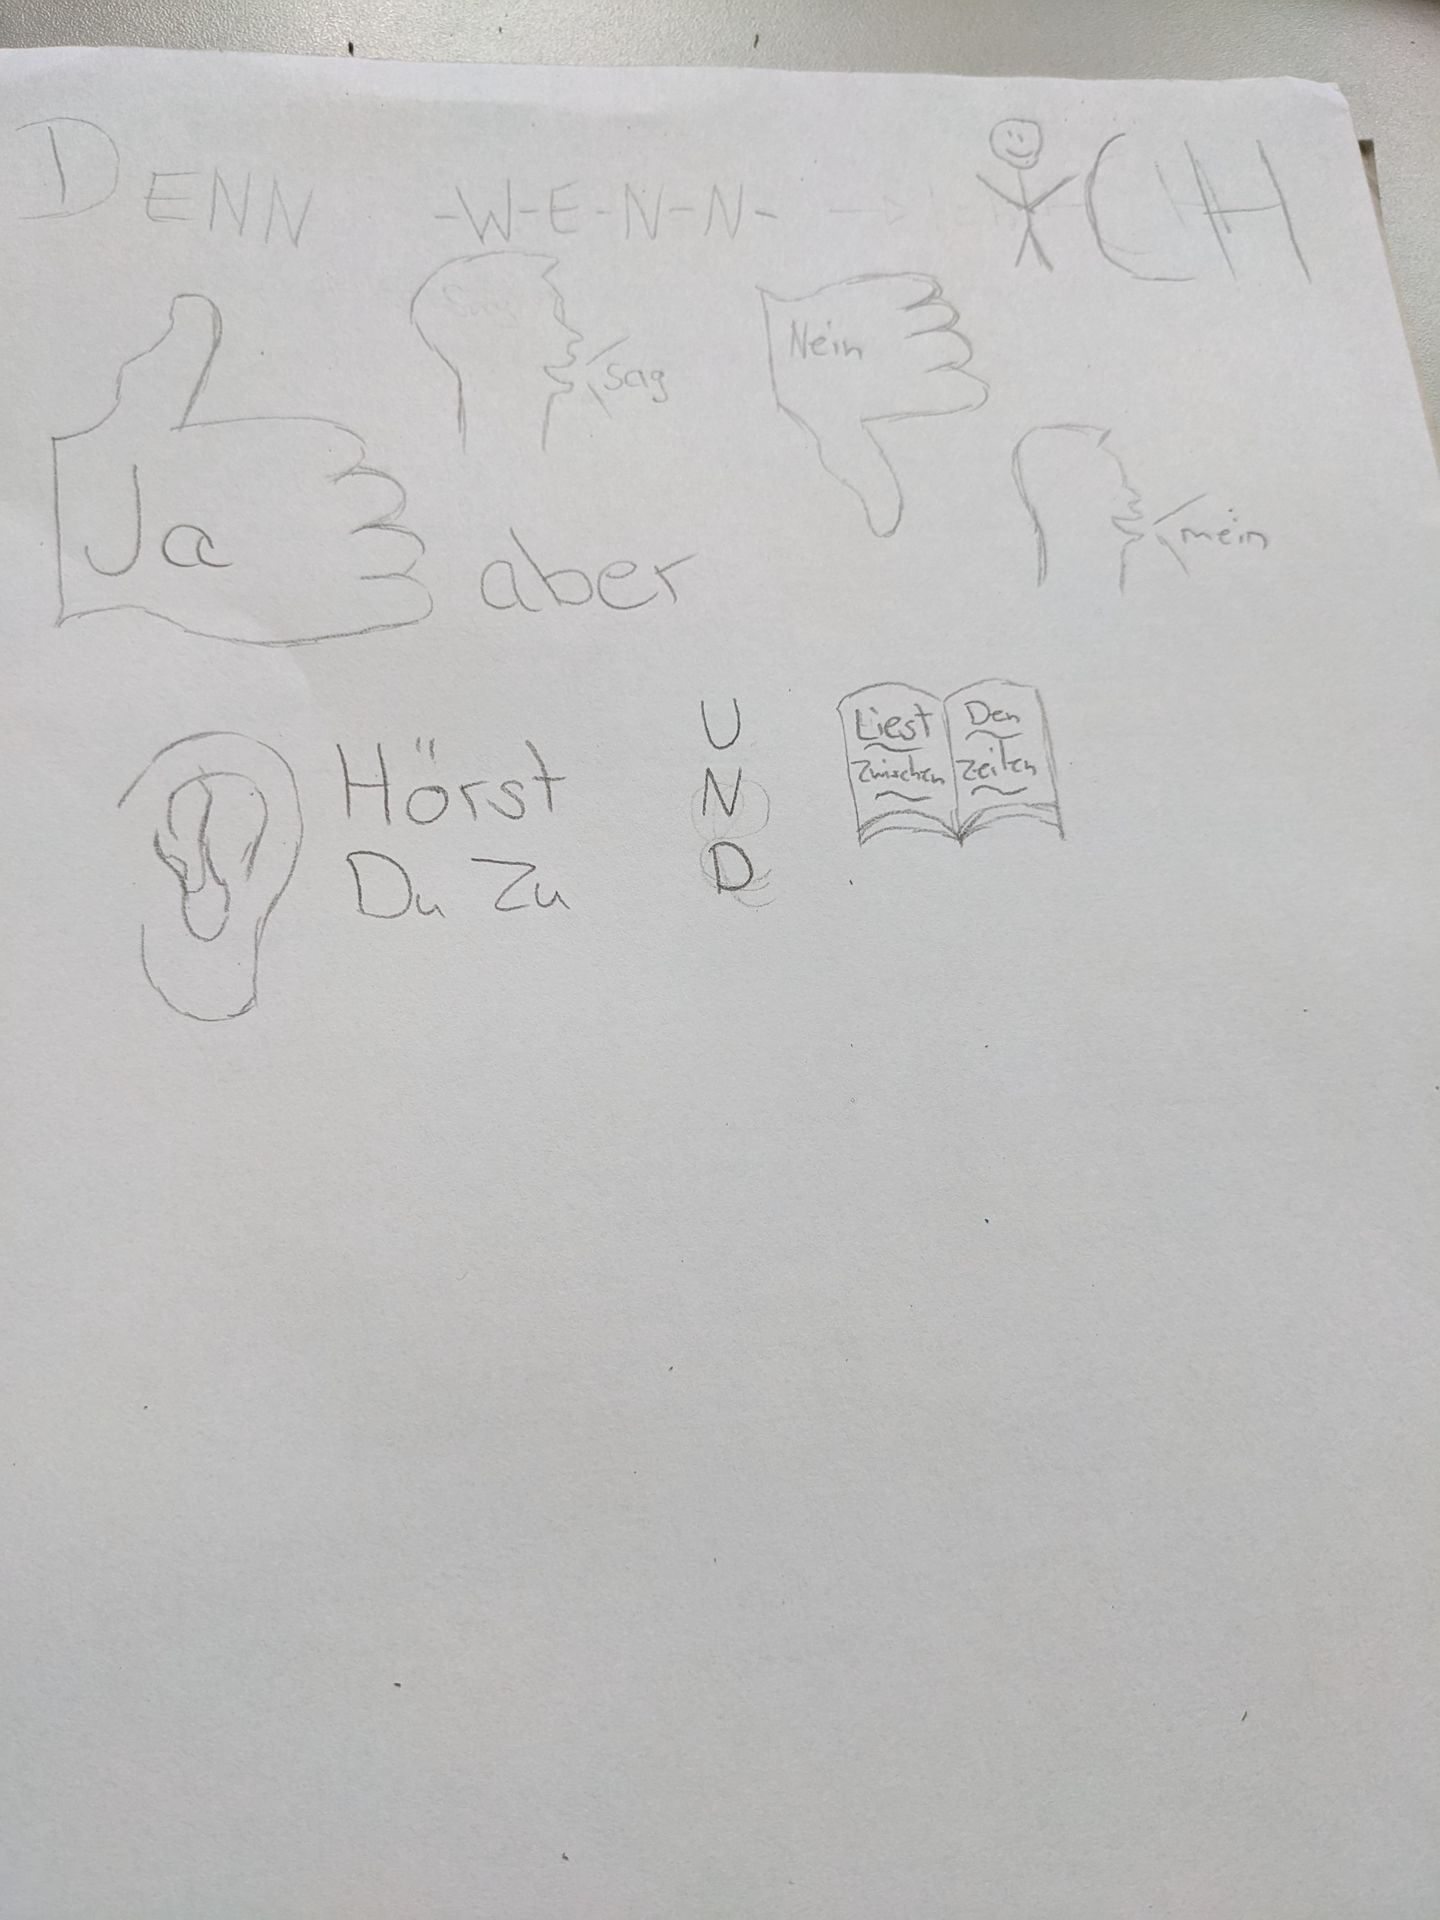 DENN -W-E-N-N- ICH
Ja sag Nein
aber mein
Hörst
Du Zu
U
N
D
Liest Den
zwischen zeilen